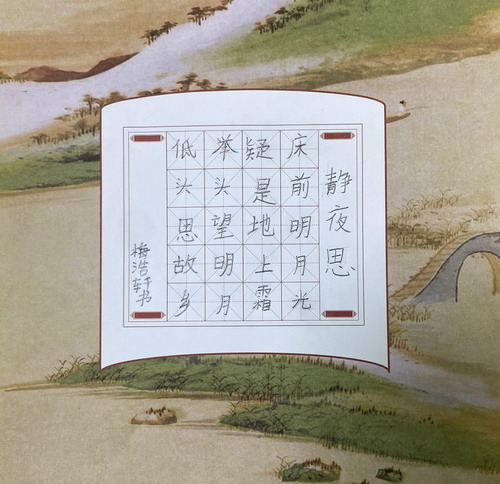 静夜思
床前明月光
疑是地上霜
举头望明月
低头思故乡
梅浩轩书